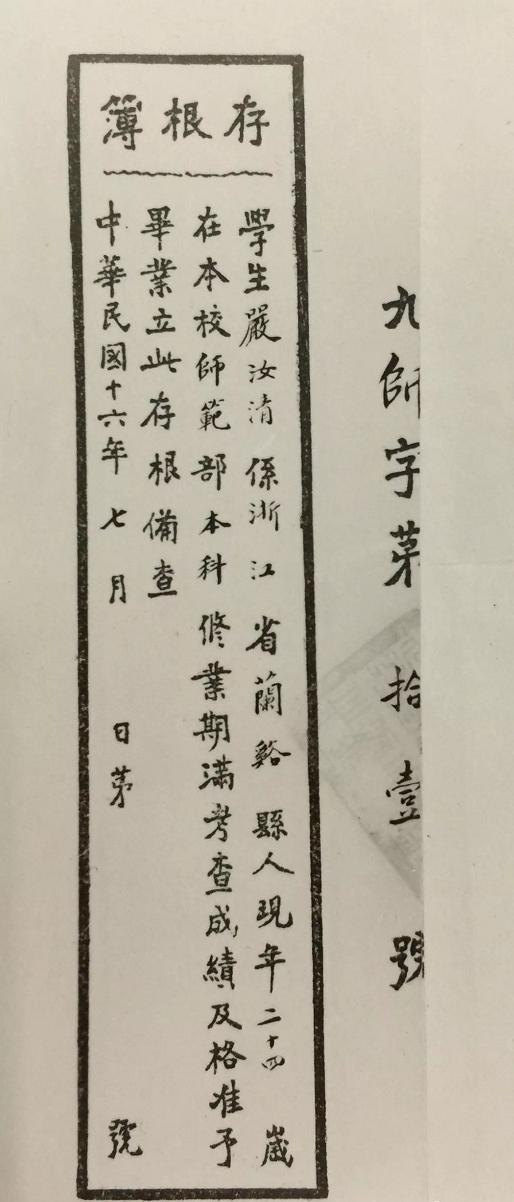 九師字第拾壹號
存根簿
學生嚴汝清係浙江省蘭谿縣人現年二十四歲
在本校師範部本科修業期滿考查成績及格准予
畢業立此存根備查
中華民國十六年七月 日第 號